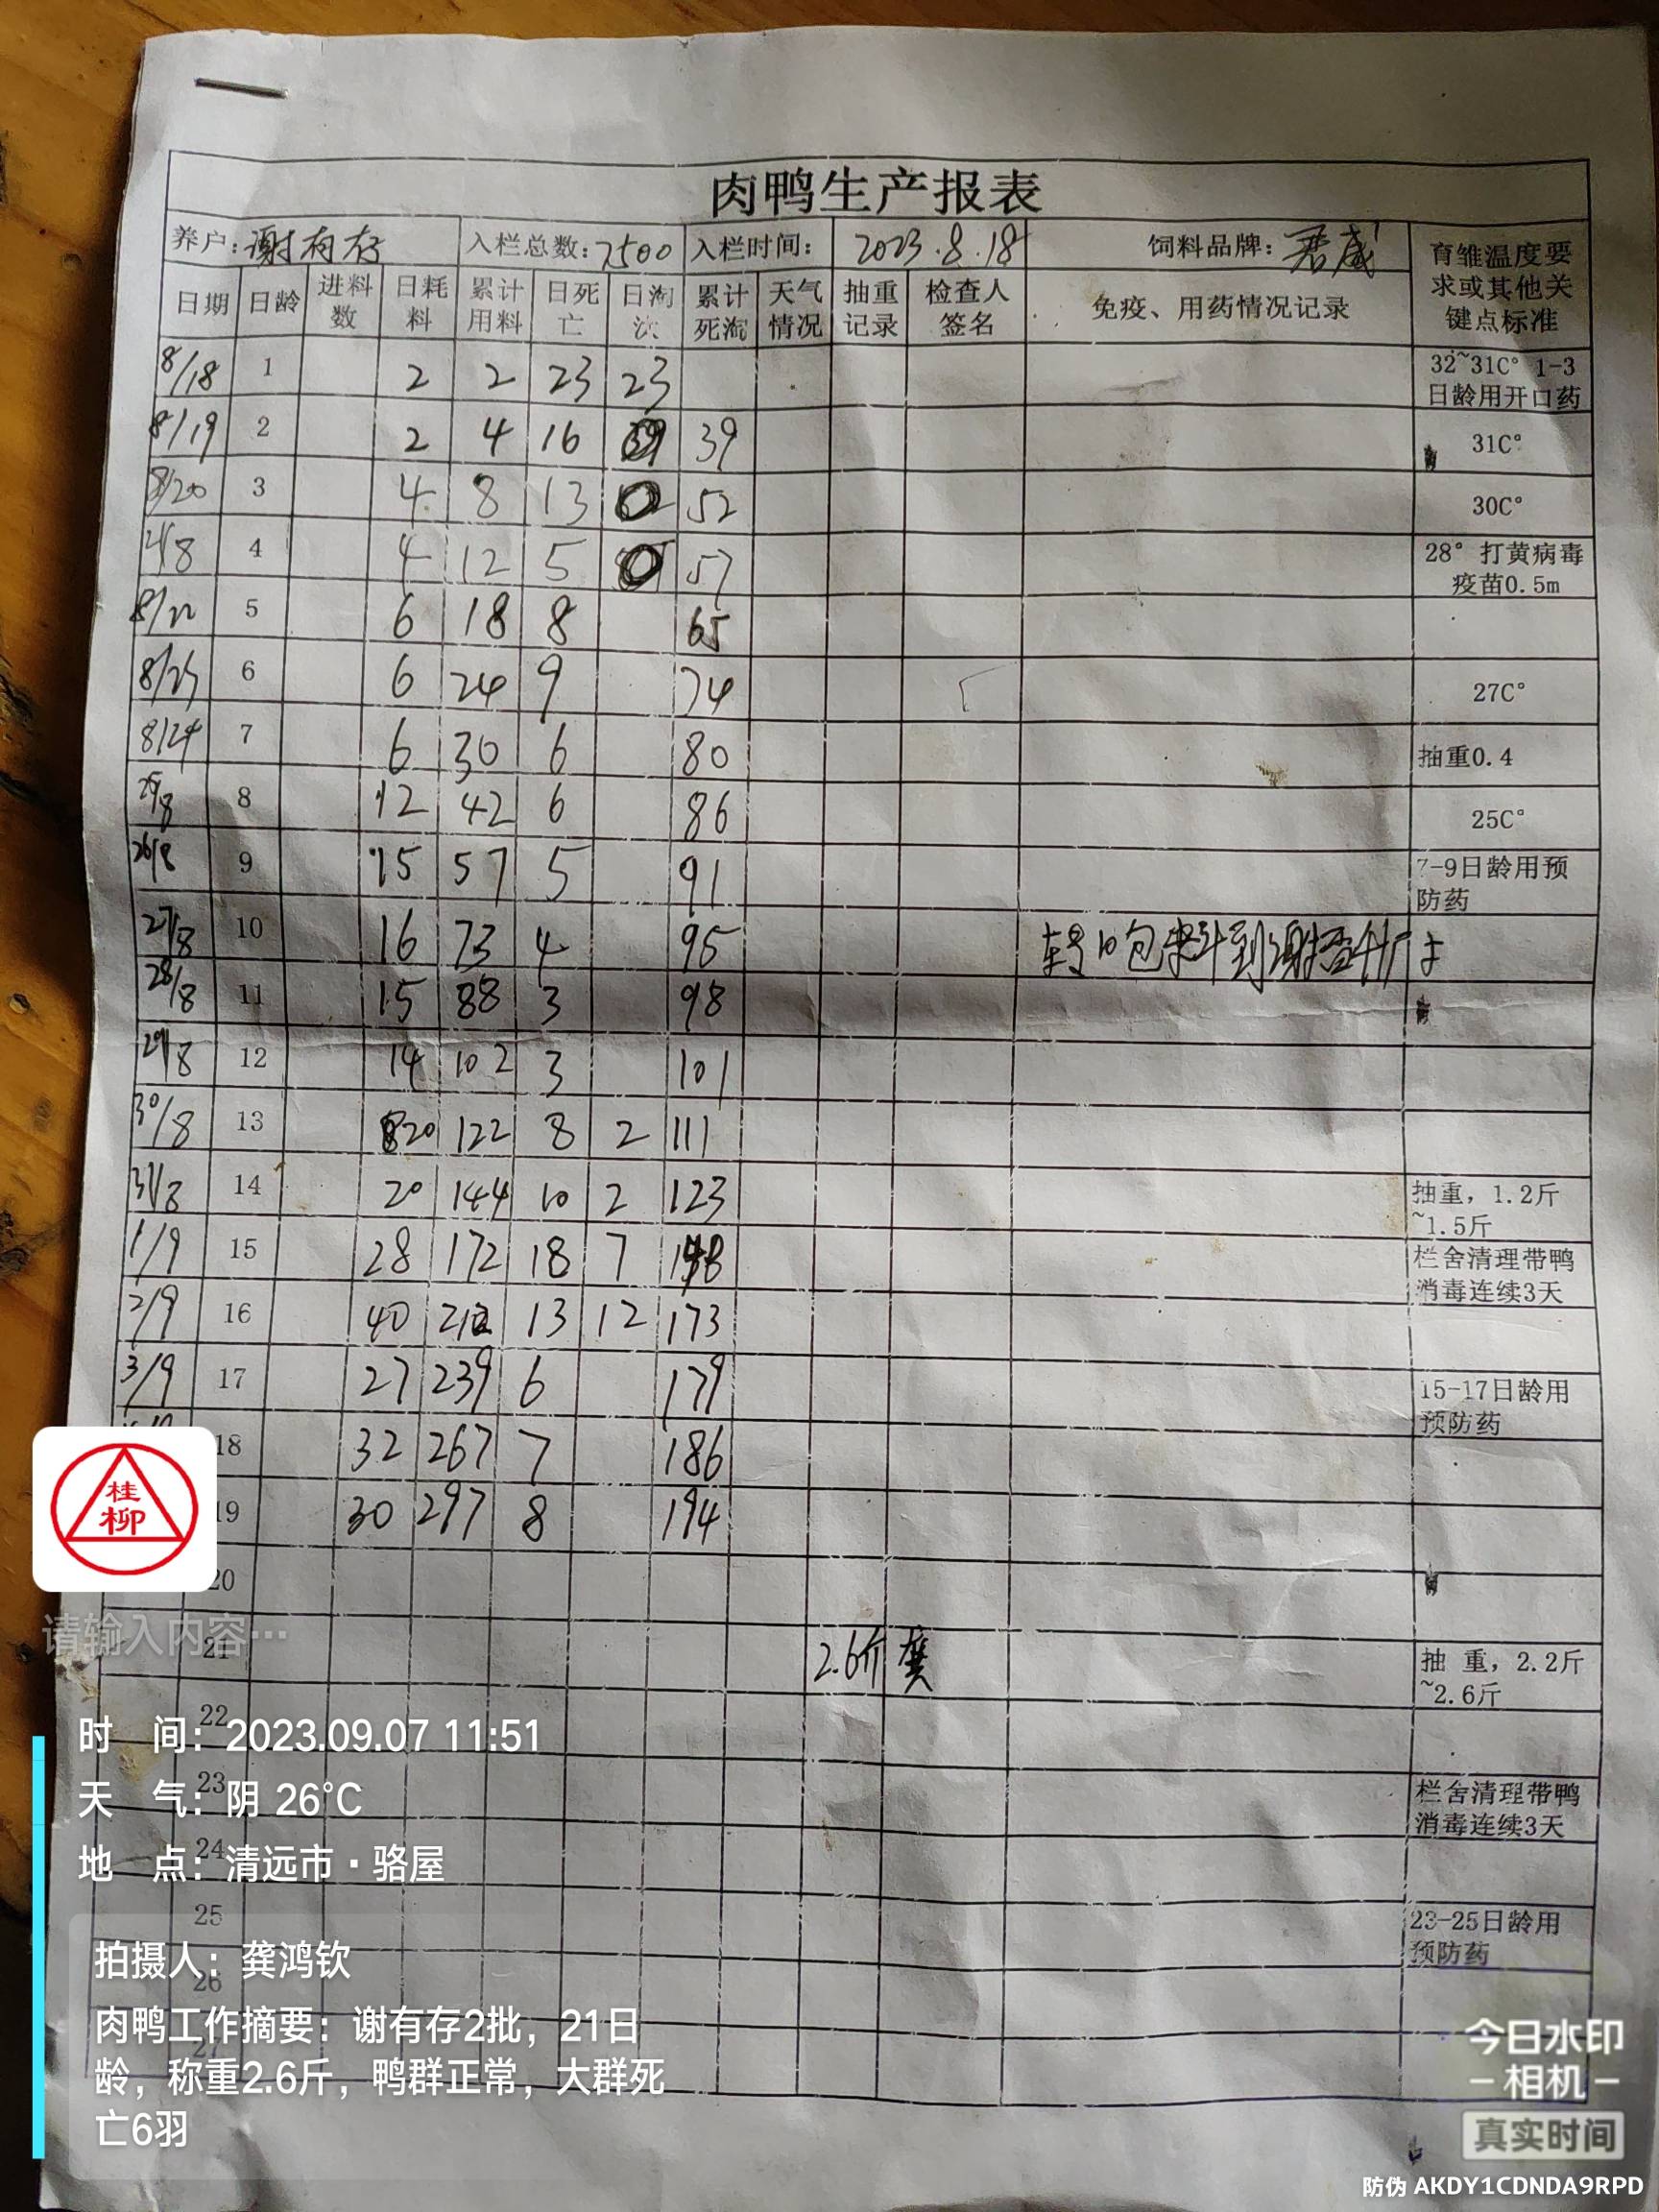 肉鸭生产报表
养户：谢有存 入栏总数：7500 入栏时间： 2023.8.18 饲料品牌：君威 育雏温度要求或其他关键点标准
日期 日龄 进料数 日耗料 累计用料 日死亡 日淘次 累计死淘 天气情况 抽重记录 检查人签名 免疫、用药情况记录
8/18 1 2 2 23 23 32~31C° 1-3日龄用开口药
8/19 2 2 4 16 39 31C°
8/20 3 4 8 13 52 30C°
21/8 4 4 12 5 57 28° 打黄病毒疫苗0.5m
8/22 5 6 18 8 65
8/23 6 6 24 9 74 27C°
8/24 7 6 30 6 80 抽重0.4
25/8 8 12 42 6 86 25C°
26/8 9 15 57 5 91 7-9日龄用预防药
27/8 10 16 73 4 95 包料到谢
28/8 11 15 88 3 98
29/8 12 14 102 3 101
30/8 13 20 122 8 2 111
31/8 14 20 144 10 2 123 抽重，1.2斤~1.5斤
1/9 15 28 172 18 7 148 栏舍清理带鸭消毒连续3天
2/9 16 40 212 13 12 173
3/9 17 27 239 6 179 15-17日龄用预防药
18 32 267 7 186
19 30 297 8 194
20
21 2.6斤 龚 抽 重，2.2斤~2.6斤
22
23 栏舍清理带鸭消毒连续3天
24
25 23-25日龄用预防药
26
27
桂
柳
请输入内容…
时 间：2023.09.07 11:51
天 气：阴 26°C
地 点：清远市·骆屋
拍摄人：龚鸿钦
肉鸭工作摘要：谢有存2批，21日
龄，称重2.6斤，鸭群正常，大群死
亡6羽
今日水印
相机
真实时间
防伪 AKDY1CDNDA9RPD